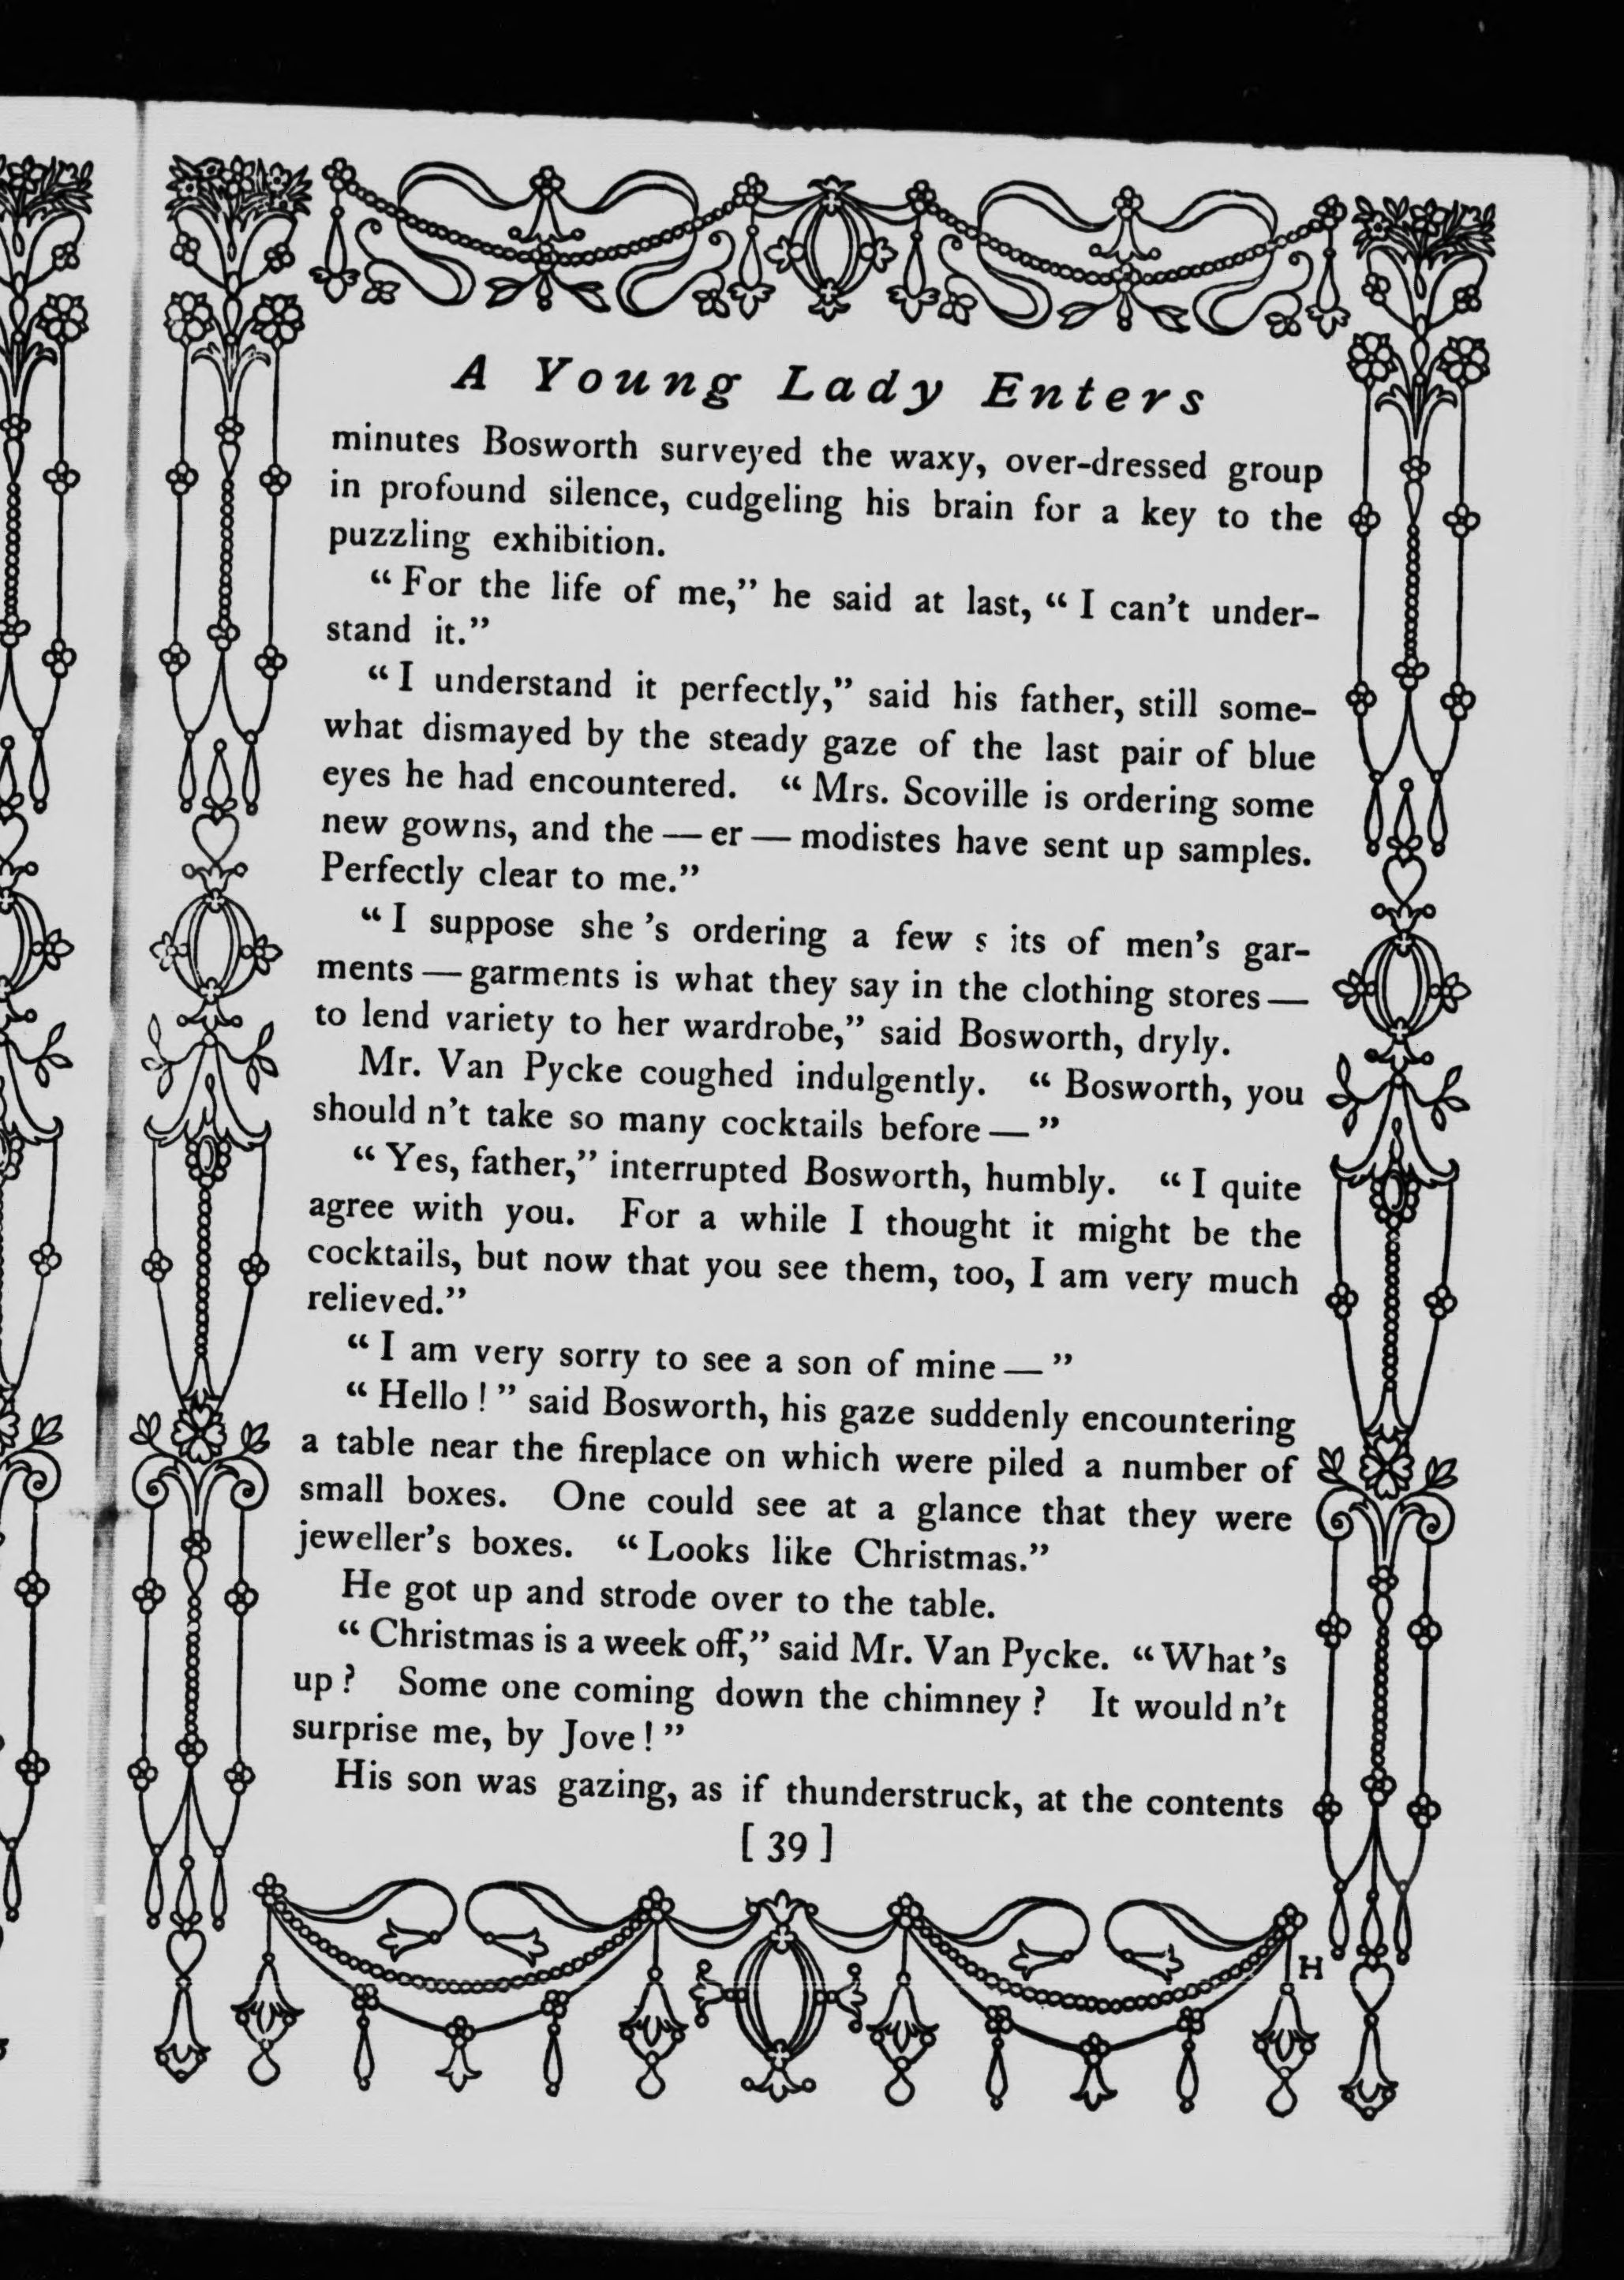 A Young Lady Enters
minutes Bosworth surveyed the waxy, over-dressed group
in profound silence, cudgeling his brain for a key to the
puzzling exhibition.
“For the life of me,” he said at last, “I can't under-
stand it.”
“I understand it perfectly,” said his father, still some-
what dismayed by the steady gaze of the last pair of blue
eyes he had encountered. “Mrs. Scoville is ordering some
new gowns, and the — er — modistes have sent up samples.
Perfectly clear to me.”
“I suppose she 's ordering a few s its of men's gar-
ments — garments is what they say in the clothing stores —
to lend variety to her wardrobe,” said Bosworth, dryly.
Mr. Van Pycke coughed indulgently. “Bosworth, you
should n't take so many cocktails before — ”
“Yes, father,” interrupted Bosworth, humbly. “I quite
agree with you. For a while I thought it might be the
cocktails, but now that you see them, too, I am very much
relieved.”
“I am very sorry to see a son of mine — ”
“Hello!” said Bosworth, his gaze suddenly encountering
a table near the fireplace on which were piled a number of
small boxes. One could see at a glance that they were
jeweller's boxes. “Looks like Christmas.”
He got up and strode over to the table.
“Christmas is a week off,” said Mr. Van Pycke. “What 's
up? Some one coming down the chimney? It would n't
surprise me, by Jove!”
His son was gazing, as if thunderstruck, at the contents
[39]
H